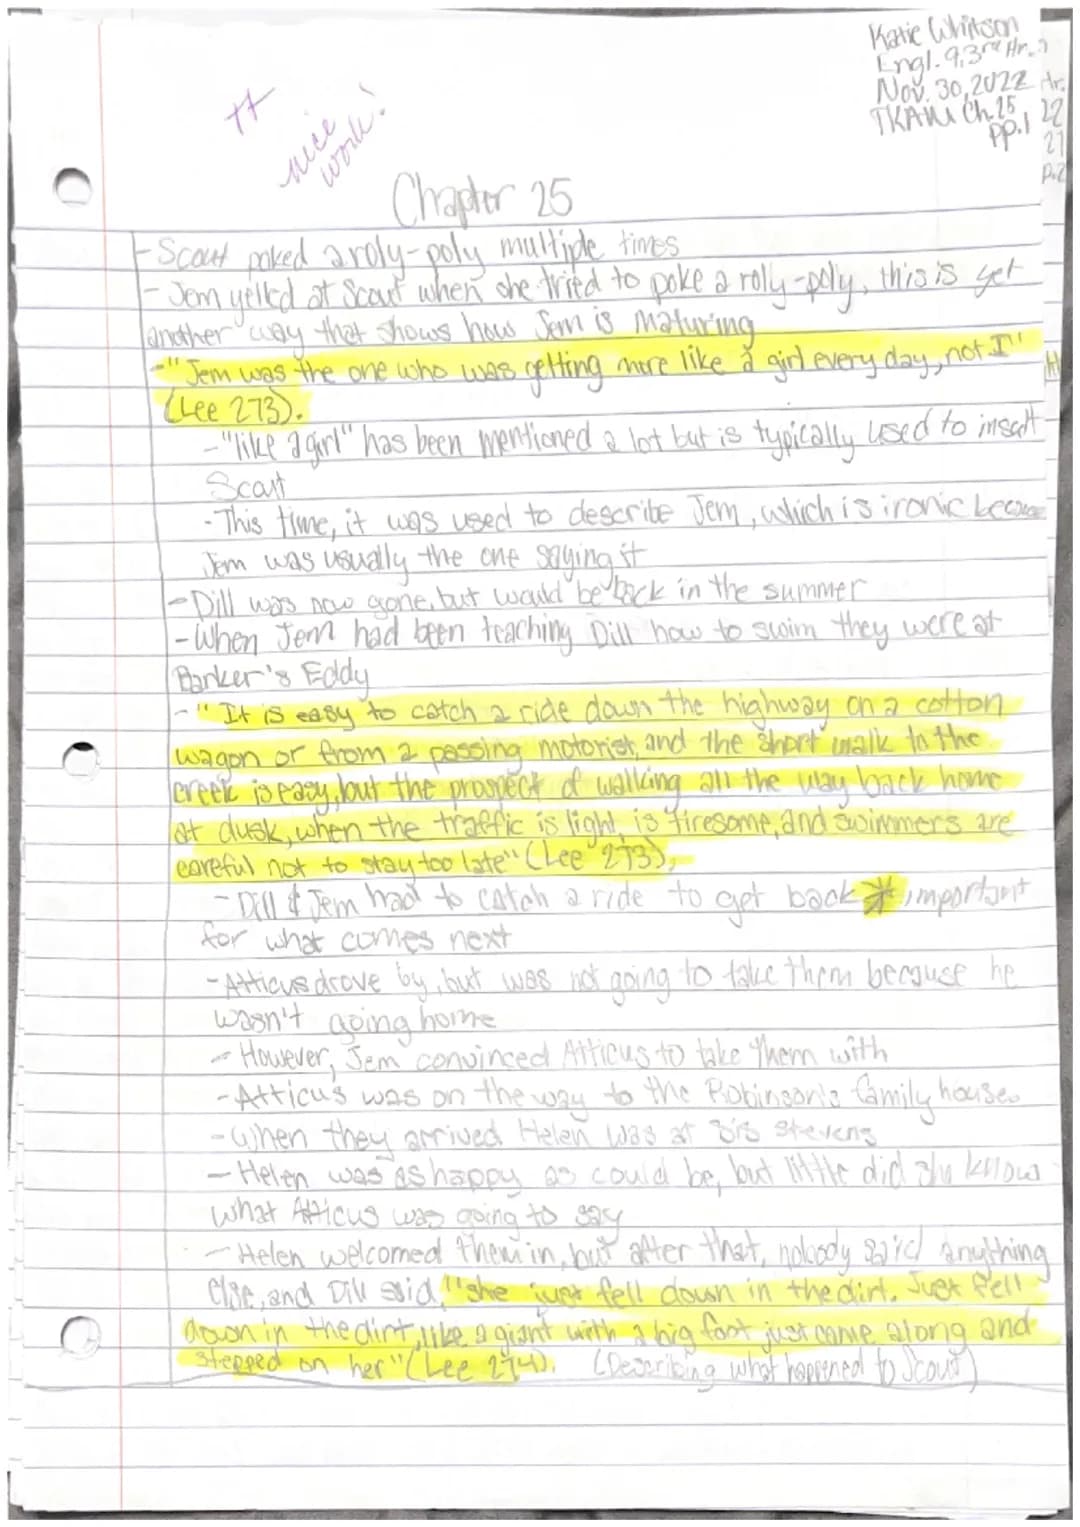 Katie Whitson
Engl. 9, 3rd Hr.
Nov. 30, 2022
TKAM Ch. 25
pp. 1
Hr.
22
27
p.2
nice
work!
Chapter 25
- Scout poked a roly-poly multiple times
- Jem yelled at Scout when she tried to poke a roly-poly, this is yet
another way that shows how Jem is maturing
- "Jem was the one who was getting more like a girl every day, not I"
(Lee 273).
- "like a girl" has been mentioned a lot but is typically used to insult
Scout
- This time, it was used to describe Jem, which is ironic because
Jem was usually the one saying it
- Dill was now gone, but would be back in the summer
- When Jem had been teaching Dill how to swim they were at
Barker's Eddy
- "It is easy to catch a ride down the highway on a cotton
wagon or from a passing motorist, and the short walk to the
creek is easy, but the prospect of walking all the way back home
at dusk, when the traffic is light, is tiresome, and swimmers are
careful not to stay too late" (Lee 273).
- Dill & Jem had to catch a ride to get back * important
for what comes next
- Atticus drove by, but was not going to take them because he
wasn't going home
- However, Jem convinced Atticus to take them with
- Atticus was on the way to the Robinson's family house.
- When they arrived Helen was at Sis Stevens
- Helen was as happy as could be, but little did she know
what Atticus was going to say
- Helen welcomed them in, but after that, nobody said anything
else, and Dill said, "she just fell down in the dirt. Just fell
down in the dirt, like a giant with a big foot just came along and
stepped on her" (Lee 274). (Describing what happened to Scout)